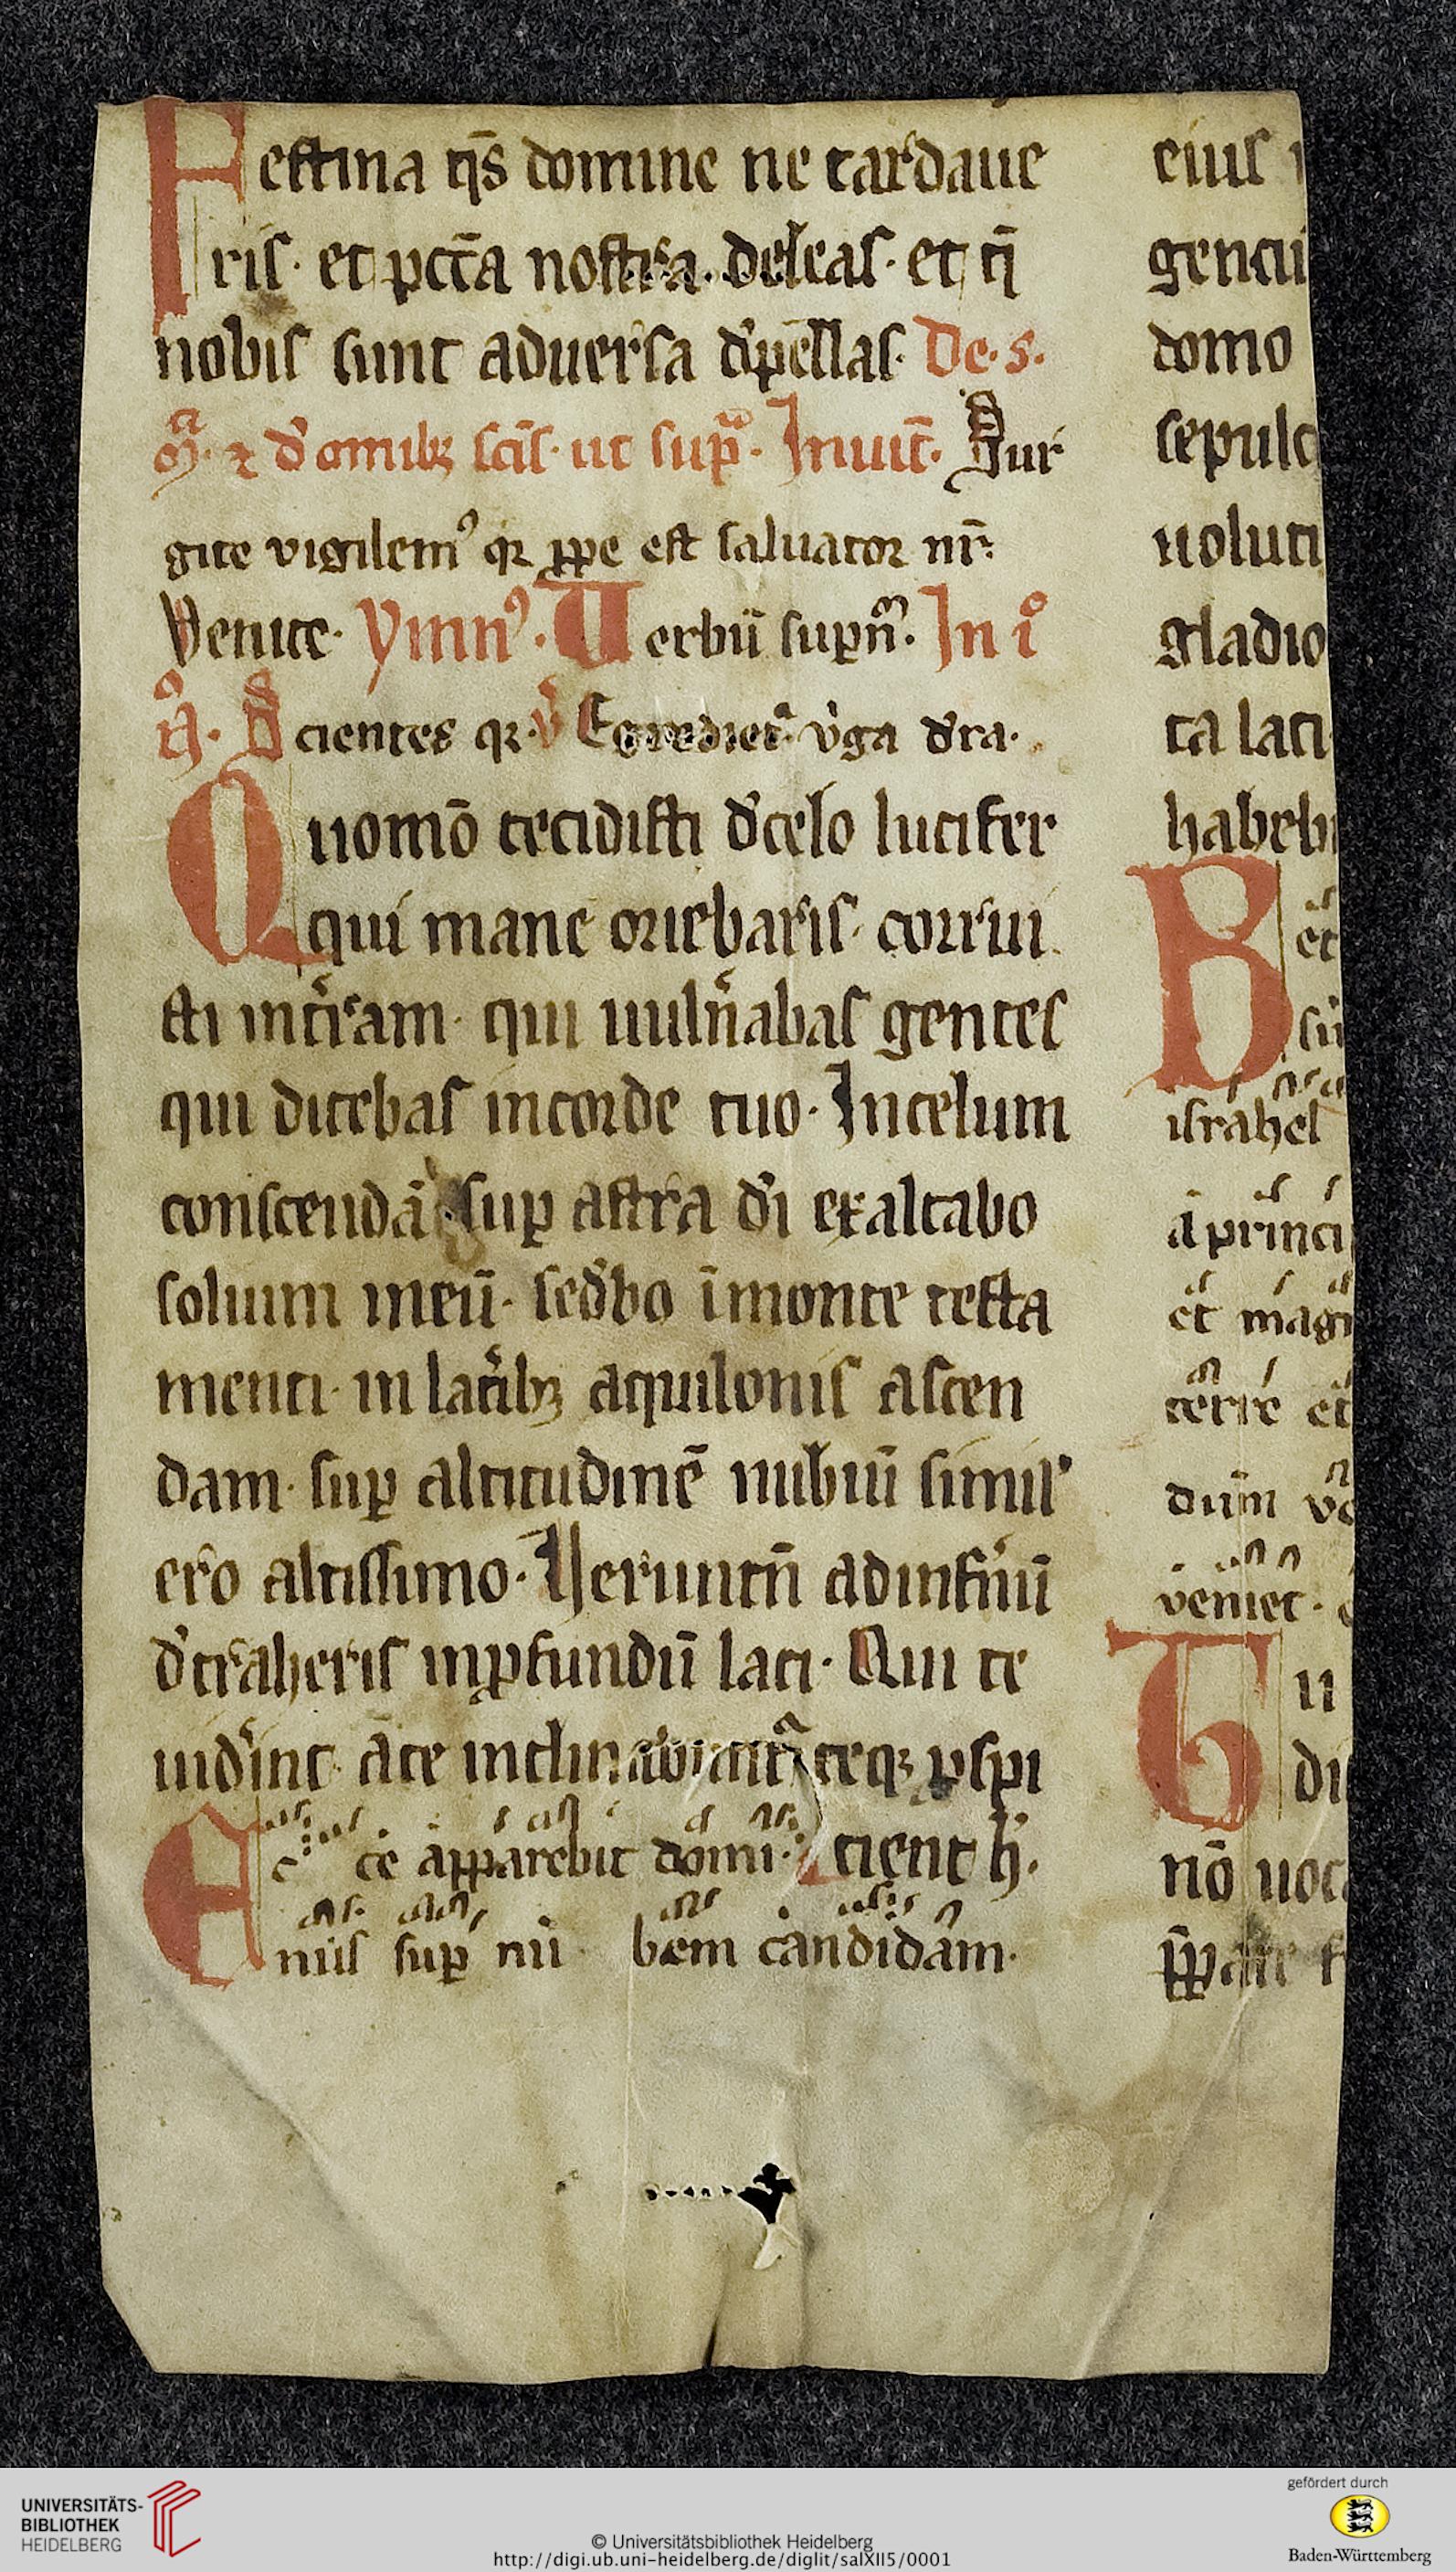 Festina qs̄ domine ne tardaue
ris· et pcc̄a nostra· deleas· et q̄
nobis sunt aduersa d'pellas· De· s·
m̄a· ⁊ d' omībꝫ sc̄is· ut supª· Inuit̄· Sur
gite vigilemꝰ qꝛ ꝓpe est saluator nr̄:
Venite· Ymnꝰ· Verbū supn̄· In i°
ṅ· Scientes qꝛ· v̓ Egrediet᷑· v̓ga d̓ ra·
Quomō cecidisti d̓ celo lucifer
qui mane oriebaris· corrui
sti int̓ram· qui uuln̓abas gentes
qui dicebas incorde tuo· Incelum
conscendā sup̱ astra d̓i exaltabo
solium meū· sed̓bo īmonte testa
menti· in lat̓ibꝫ aquilonis ascen
dam· sup̱ altitudinē nubiū simil'
ero altissimo· Veruntn̄ adinfnū
d̓traheris inꝓfundū laci· Qui te
uid̓int āte inclinabunt᷑ teqꝫ ꝓspi
Ecce apparebit domi· cient h̓·
nus sup̱ nu bem candidam·
eius
gentiū
domo
sepulc
uoluti
gladio
ta laci
habeb
Bet
su
israhel
a princi
et magi
terre et
dum ve
veniet·
Tu
di
nō uoca
UNIVERSITÄTS-
BIBLIOTHEK
HEIDELBERG
© Universitätsbibliothek Heidelberg
http://digi.ub.uni-heidelberg.de/diglit/salXII5/0001
gefördert durch
Baden-Württemberg